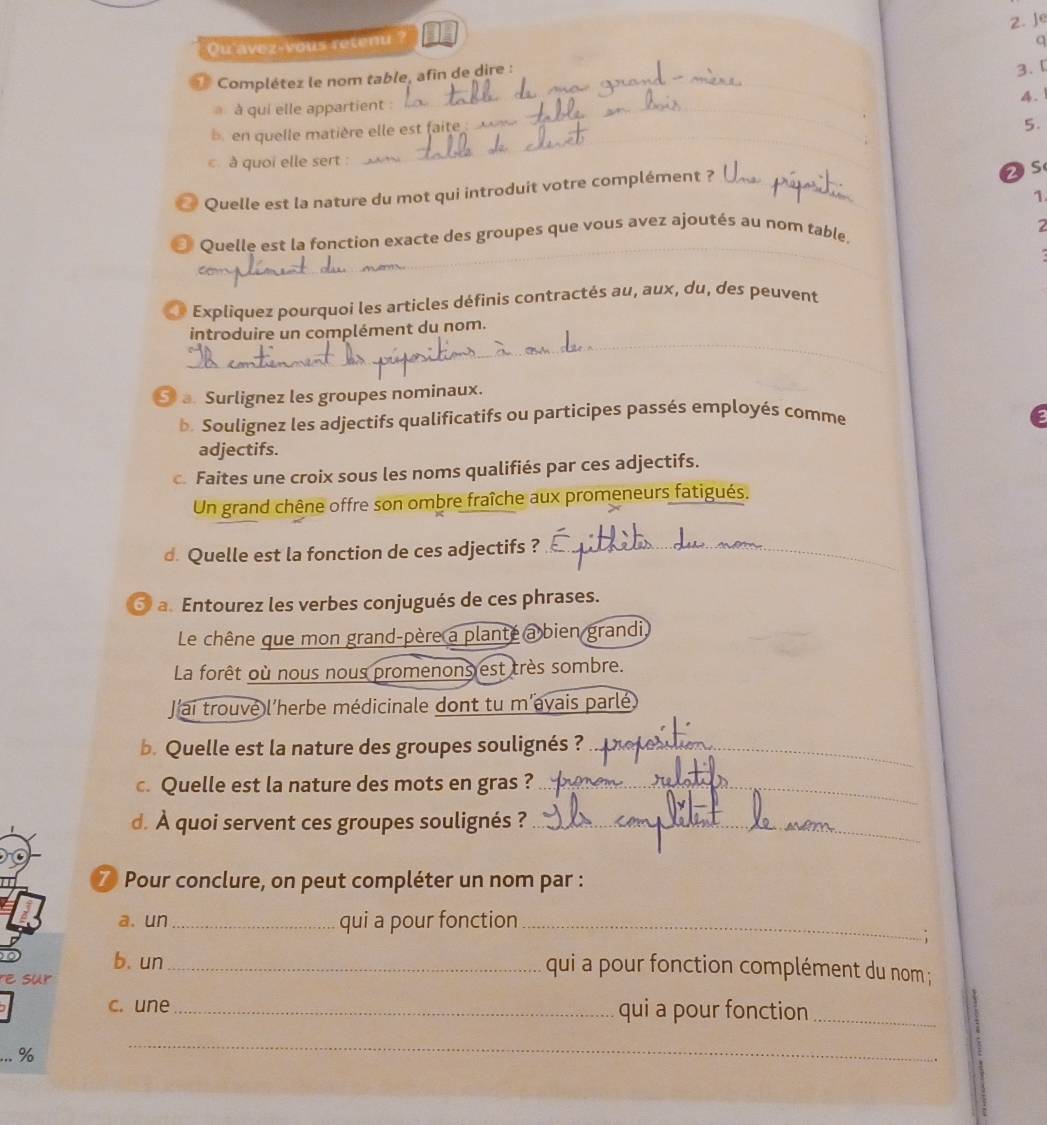 Qu'avez-vous retenu ?
1 Complétez le nom table, afin de dire :
a. à qui elle appartient : La table de ma grand-mère
b. en quelle matière elle est faite : une table en bois
c. à quoi elle sert : une table de chevet
2 Quelle est la nature du mot qui introduit votre complément ? Une préposition
3 Quelle est la fonction exacte des groupes que vous avez ajoutés au nom table.
complément du nom
4 Expliquez pourquoi les articles définis contractés au, aux, du, des peuvent
introduire un complément du nom.
Ils contiennent les prépositions à ou de.
5 a. Surlignez les groupes nominaux.
b. Soulignez les adjectifs qualificatifs ou participes passés employés comme
adjectifs.
c. Faites une croix sous les noms qualifiés par ces adjectifs.
Un grand chêne offre son ombre fraîche aux promeneurs fatigués.
d. Quelle est la fonction de ces adjectifs ? Épithètes du nom
6 a. Entourez les verbes conjugués de ces phrases.
Le chêne que mon grand-père a planté a bien grandi.
La forêt où nous nous promenons est très sombre.
J'ai trouvé l'herbe médicinale dont tu m'avais parlé.
b. Quelle est la nature des groupes soulignés ? proposition
c. Quelle est la nature des mots en gras ? pronom relatifs
d. À quoi servent ces groupes soulignés ? Ils complètent le nom
7 Pour conclure, on peut compléter un nom par :
a. un qui a pour fonction ;
b. un qui a pour fonction complément du nom ;
c. une qui a pour fonction
.
2. Je
q
3.
4.
5.
2 S
1.
2
3
re sur
... %